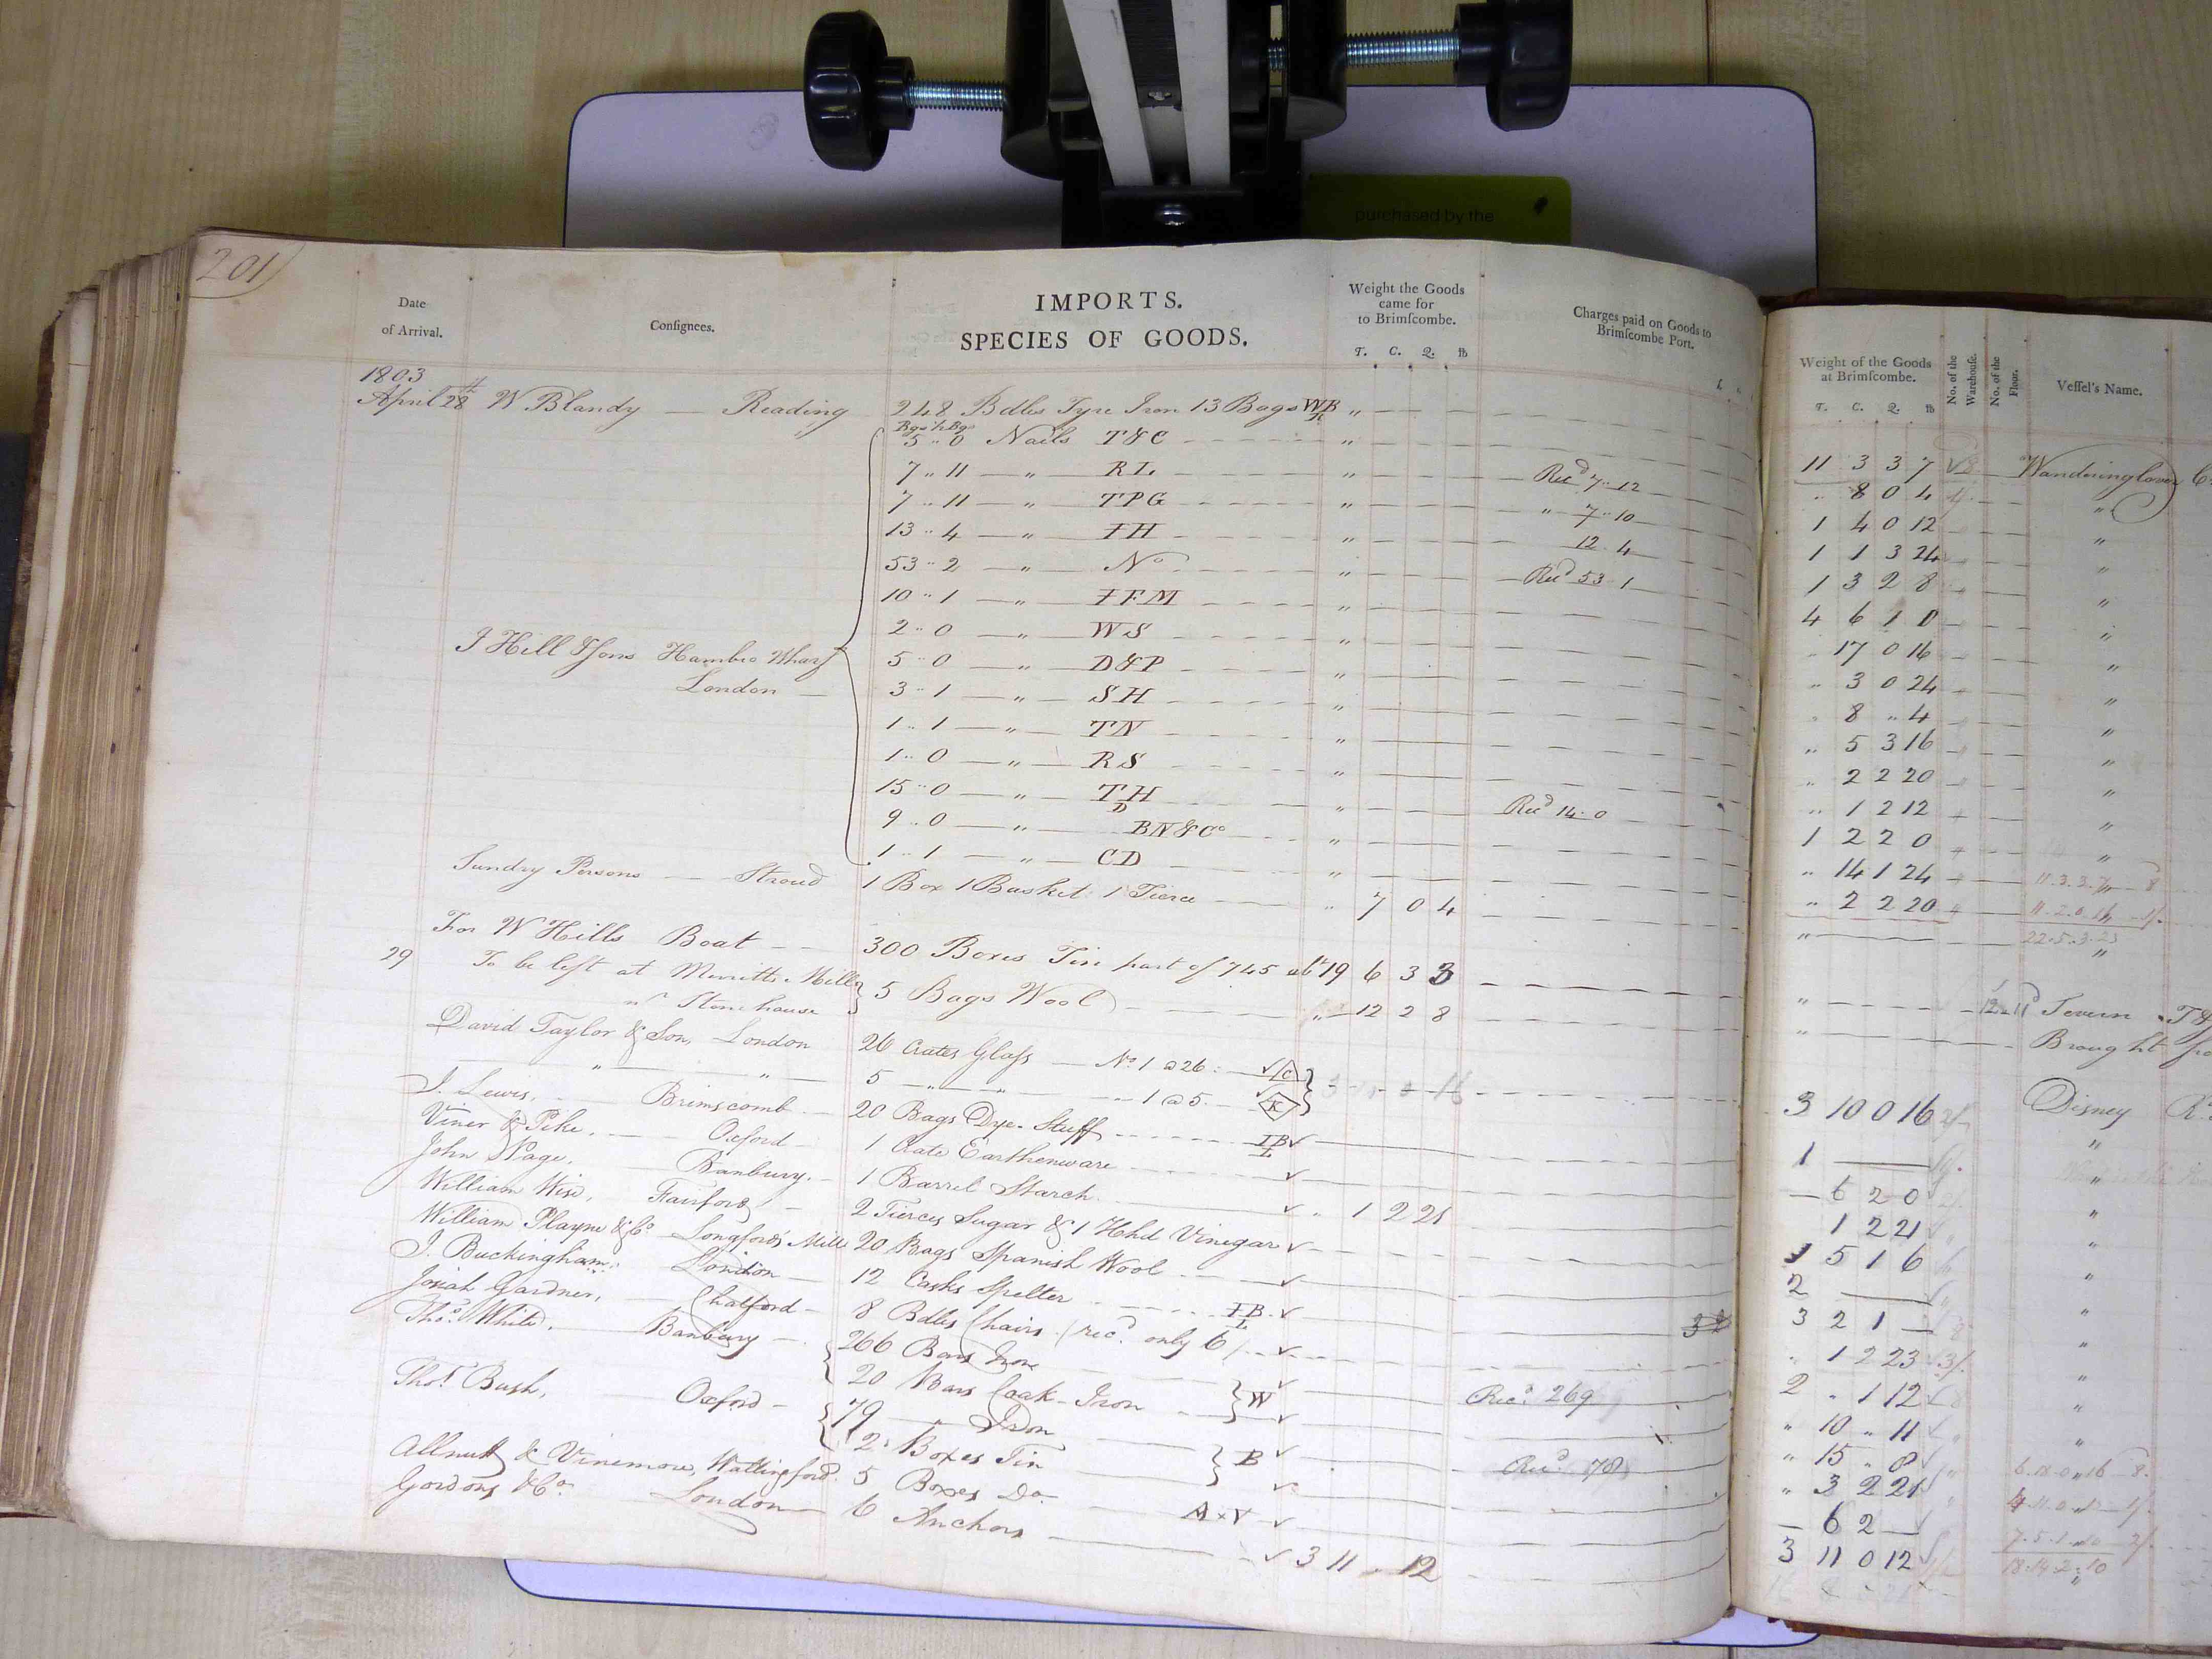 purchased by the
201
Date of Arrival. Consignees. IMPORTS. SPECIES OF GOODS. Weight the Goods came for to Brimscombe. T. C. Q. lb Charges paid on Goods to Brimscombe Port. Weight of the Goods at Brimscombe. T. C. Q. lb No. of the Warehouse. No. of the Floor. Vessel's Name.
1803
April 28th W Blandy — Reading 248 Bdles Tyre Iron 13 Bags WB R " 11 3 3 7 Wanderinglover
Bgs ½ Bgs
5 .. 0 Nails T&C " .. 8 0 4 "
7 .. 11 — " — RL " Recd 7 .. 12 1 4 0 12 "
7 .. 11 — " — TPG " " 7 .. 10 1 1 3 24 "
13 .. 4 — " — IH " 12 .. 4 1 3 2 8 "
53 .. 2 — " — No " Recd 53 .. 1 4 6 1 0 "
10 .. 1 — " — IFM " .. 17 0 16 "
2 .. 0 — " — WS " .. 3 0 24 "
J Hill & Sons Hambro Wharf London 5 .. 0 — " — D&P " .. 8 .. 4 "
3 .. 1 — " — SH " .. 5 3 16 "
1 .. 1 — " — TN " .. 2 2 20 "
1 .. 0 — " — RS " .. 1 2 12 "
15 .. 0 — " — TH D " Recd 14 .. 0 1 2 2 0 "
9 .. 0 — " — BN&Co " .. 14 1 24 11.3.3.7 8
1 .. 1 — " — CD " .. 2 2 20
Sundry Persons — Stroud 1 Box 1 Basket 1 Tierce .. 7 0 4 " 22.5.3.23
For W Hills Boat 300 Boxes Tin part of 745 wt 19 6 3 3 " Severn
29 To be left at Merretts Mill nr Stonehouse 5 Bags Wool " 12 2 8 " Brought
David Taylor & Son, London 26 Crates Glass — No 1 @ 26 C 3 10 0 16 Disney
" " 5 " " 1 @ 5 K "
J. Lewis, Brimscomb 20 Bags Dye-Stuff IB L 1 "
Viner & Pike, Oxford 1 Crate Earthenware — 6 2 0 "
John Page, Banbury 1 Barrel Starch .. 1 2 21 1 2 21 "
William Wise, Fairford 2 Tierces Sugar & 1 Hhd Vinegar 1 5 1 6 "
William Playne & Co Longfords Mill 20 Bags Spanish Wool 2 "
J. Buckingham London 12 Casks Spelter IB L 3 2 1 — "
Josiah Gardner, Chalford 8 Bdles Chairs (recd only 6) .. 1 2 23 "
Thos White, Banbury 266 Bars Iron Recd 269 2 .. 1 12 "
20 Bars Coak-Iron W " 10 .. 11 "
Thos Bush, Oxford 79 — " — Iron Recd 78 " 15 .. 8
2 Boxes Tin B " 3 2 21
Allnutt & Vinemore, Wallingford 5 Boxes Do A × V — 6 2 —
Gordons & Co London 6 Anchors 3 11 .. 12 3 11 0 12 18.14.2.10